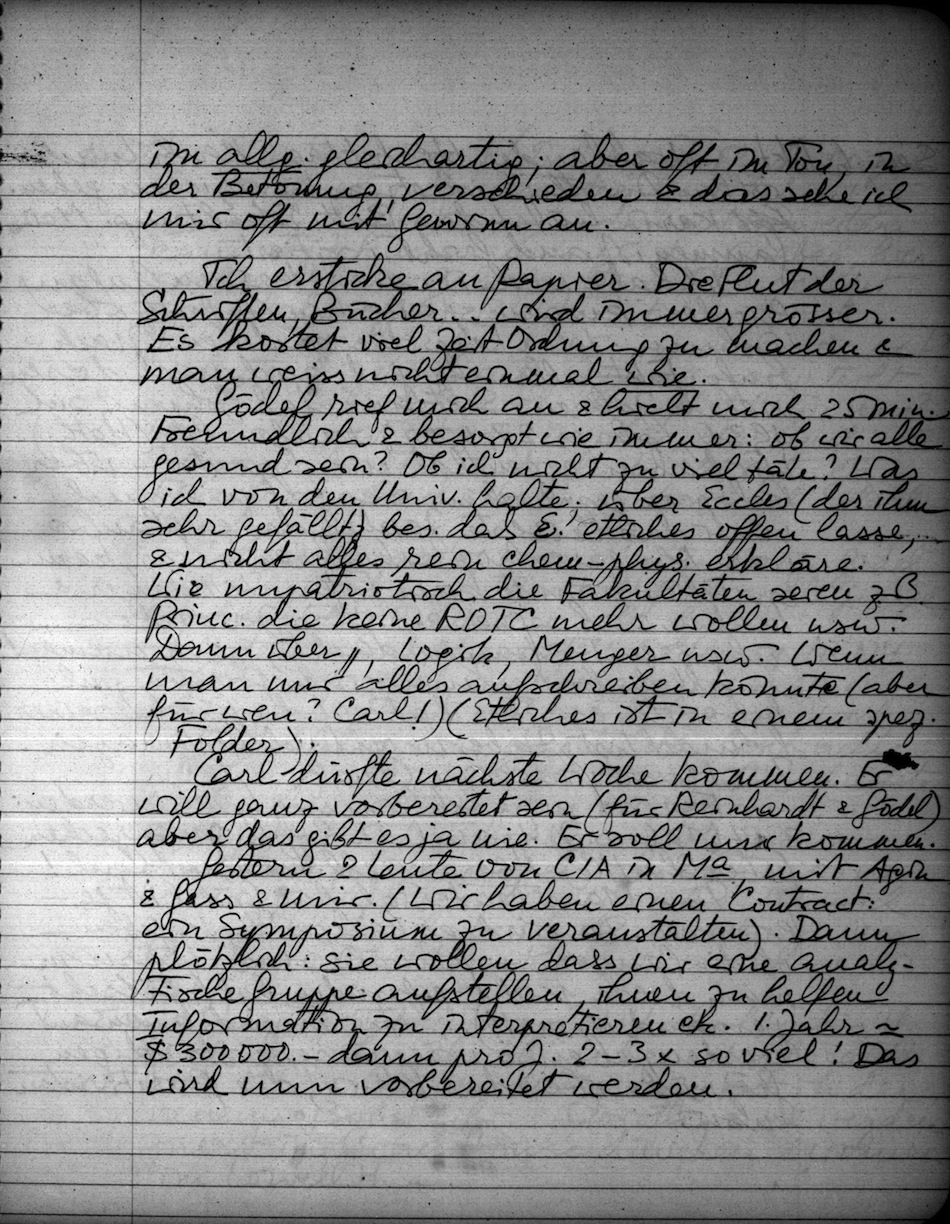 im allg. gleichartig; aber oft im Ton, in
der Betonung, verschieden & das sehe ich
mir oft mit Gewinn an.
Ich ersticke an Papier. Die Flut der
Schriften, Bücher.. wird immer grösser.
Es kostet viel Zeit Ordnung zu machen &
man weiss nicht einmal wie.
Gödel rief mich an & hielt mich 25 min.
Freundlich & besorgt wie immer: ob wir alle
gesund sein? Ob ich nicht zu viel täte? Was
ich von den Univ. halte; über Eccles (der ihm
sehr gefällt; bes. das E. etliches offen lasse,
& nicht alles rein chem-phys. erkläre.
Wie unpatriotisch die Fakultäten seien z B.
Princ. die keine ROTC mehr wollen usw.
Dann über , Logik, Menger usw. Wenn
man nur alles aufschreiben könnte (aber
für wen? Carl!) (Etliches ist in einem spez.
Folder).
Carl dürfte nächste Woche kommen. Er
will ganz vorbereitet sein (für Reinhardt & Gödel)
aber das gibt es ja nie. Er soll nur kommen.
Gestern 2 Leute von CIA in Ma, mit Agin
& Gass & mir. (Wir haben einen Contract:
ein Symposium zu veranstalten). Dann
plötzlich: sie wollen dass wir eine analy-
tische Gruppe aufstellen, ihnen zu helfen
Information zu interpretieren etc. 1. Jahr ≈
$ 300 000.– dann proj. 2–3x so viel! Das
wird nun vorbereitet werden.